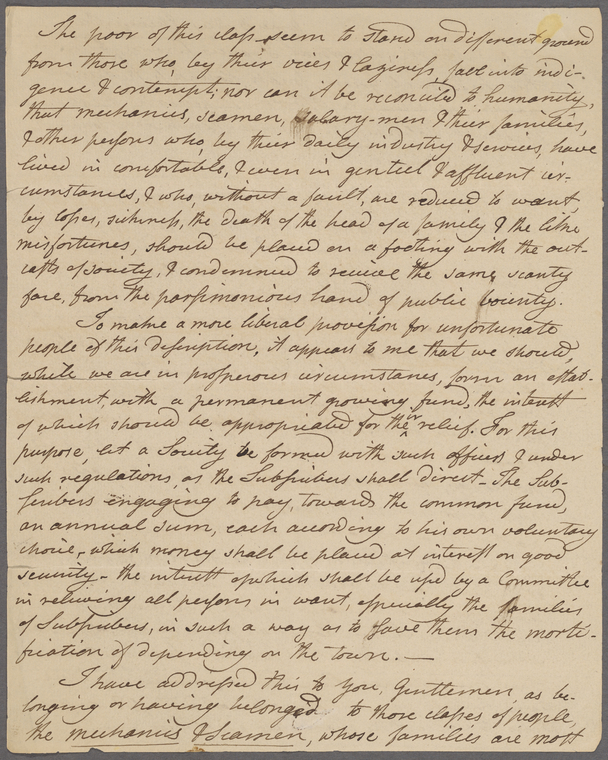 The poor of this class seem to stand on different ground
from those who, by their vices & laziness, fall into indi-
gence & contempt; nor can it be reconciled to humanity,
that mechanics, seamen, salary-men & their families,
& other persons who, by their daily industry & services, have
lived in comfortable, & even in genteel & affluent cir-
cumstances, & who, without a fault, are reduced to want,
by losses, sickness, the death of the head of a family & the like
misfortunes, should be placed on a footing with the out-
casts of society, & condemned to receive the same scanty
fare, from the parsimonious hand of public bounty.
To make a more liberal provision for unfortunate
people of this description, it appears to me that we should,
while we are in prosperous circumstances, form an estab-
lishment, with a permanent growing fund, the interest
of which should be appropriated for their relief. For this
purpose, let a Society be formed with such officers & under
such regulations, as the Subscribers shall direct - The Sub-
scribers engaging to pay, towards the common fund,
an annual sum, each according to his own voluntary
choice, - which money shall be placed at interest on good
security - the interest of which shall be used by a Committee
in relieving all persons in want, especially the families
of Subscribers, in such a way as to save them the morti-
fication of depending on the town. —
I have addressed this to you, Gentlemen, as be-
longing or having belonged to those classes of people,
the mechanics & Seamen, whose families are most